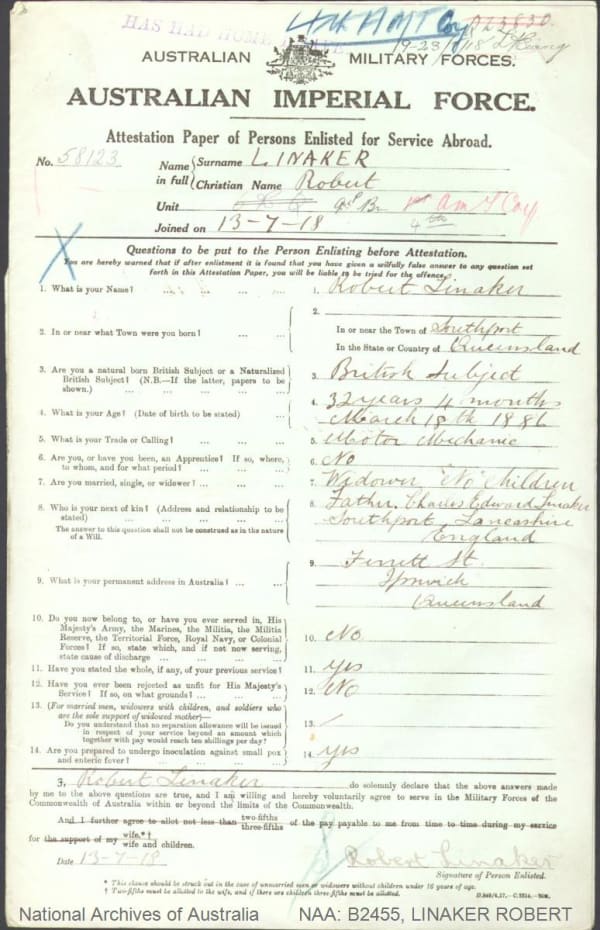 HAS HAD HOME
4th AMT Coy
19-23/1/18
AUSTRALIAN MILITARY FORCES.
AUSTRALIAN IMPERIAL FORCE.
Attestation Paper of Persons Enlisted for Service Abroad.
No. 58123
Name in full
Surname LINAKER
Christian Name Robert
Unit AMT Coy
4th
Joined on 13-7-18
Questions to be put to the Person Enlisting before Attestation.
You are hereby warned that if after enlistment it is found that you have given a wilfully false answer to any question set
forth in this Attestation Paper, you will be liable to be tried for the offence.
1. What is your Name? ... ... ... ...
1. Robert Linaker
2. In or near what Town were you born? ... ...
2.
In or near the Town of Southport
In the State or Country of Queensland
3. Are you a natural born British Subject or a Naturalized
British Subject? (N.B.—If the latter, papers to be
shown.) ... ... ... ... ...
3. British Subject
4. What is your Age? (Date of birth to be stated) ...
4. 32 years 4 months
March 18th 1886
5. What is your Trade or Calling? ... ... ...
5. Motor Mechanic
6. Are you, or have you been, an Apprentice? If so, where,
to whom, and for what period? ... ... ...
6. No
7. Are you married, single, or widower? ... ... ...
7. Widower "No" Children
8. Who is your next of kin? (Address and relationship to be
stated) ... ... ... ... ...
The answer to this question shall not be construed as in the nature
of a Will.
8. Father, Charles Edward Linaker
Southport, Lancashire
England
9. What is your permanent address in Australia? ... ...
9. Ferrett St.
Ipswich
Queensland
10. Do you now belong to, or have you ever served in, His
Majesty's Army, the Marines, the Militia, the Militia
Reserve, the Territorial Force, Royal Navy, or Colonial
Forces? If so, state which, and if not now serving,
state cause of discharge ... ... ... ...
10. No
11. Have you stated the whole, if any, of your previous service?
11. yes
12. Have you ever been rejected as unfit for His Majesty's
Service? If so, on what grounds? ... ... ...
12. No
13. (For married men, widowers with children, and soldiers who
are the sole support of widowed mother)—
Do you understand that no separation allowance will be issued
in respect of your service beyond an amount which
together with pay would reach ten shillings per day?
13. /
14. Are you prepared to undergo inoculation against small pox
and enteric fever? ... ... ... ...
14. yes
I, Robert Linaker do solemnly declare that the above answers made
by me to the above questions are true, and I am willing and hereby voluntarily agree to serve in the Military Forces of the
Commonwealth of Australia within or beyond the limits of the Commonwealth.
And I further agree to allot not less than two-fifths three-fifths of the pay payable to me from time to time during my service
for the support of my wife.*† wife and children.
Date 13-7-18
Robert Linaker
Signature of Person Enlisted.
* This clause should be struck out in the case of unmarried men or widowers without children under 16 years of age.
† Two-fifths must be allotted to the wife, and if there are children three-fifths must be allotted.
National Archives of Australia NAA: B2455, LINAKER ROBERT